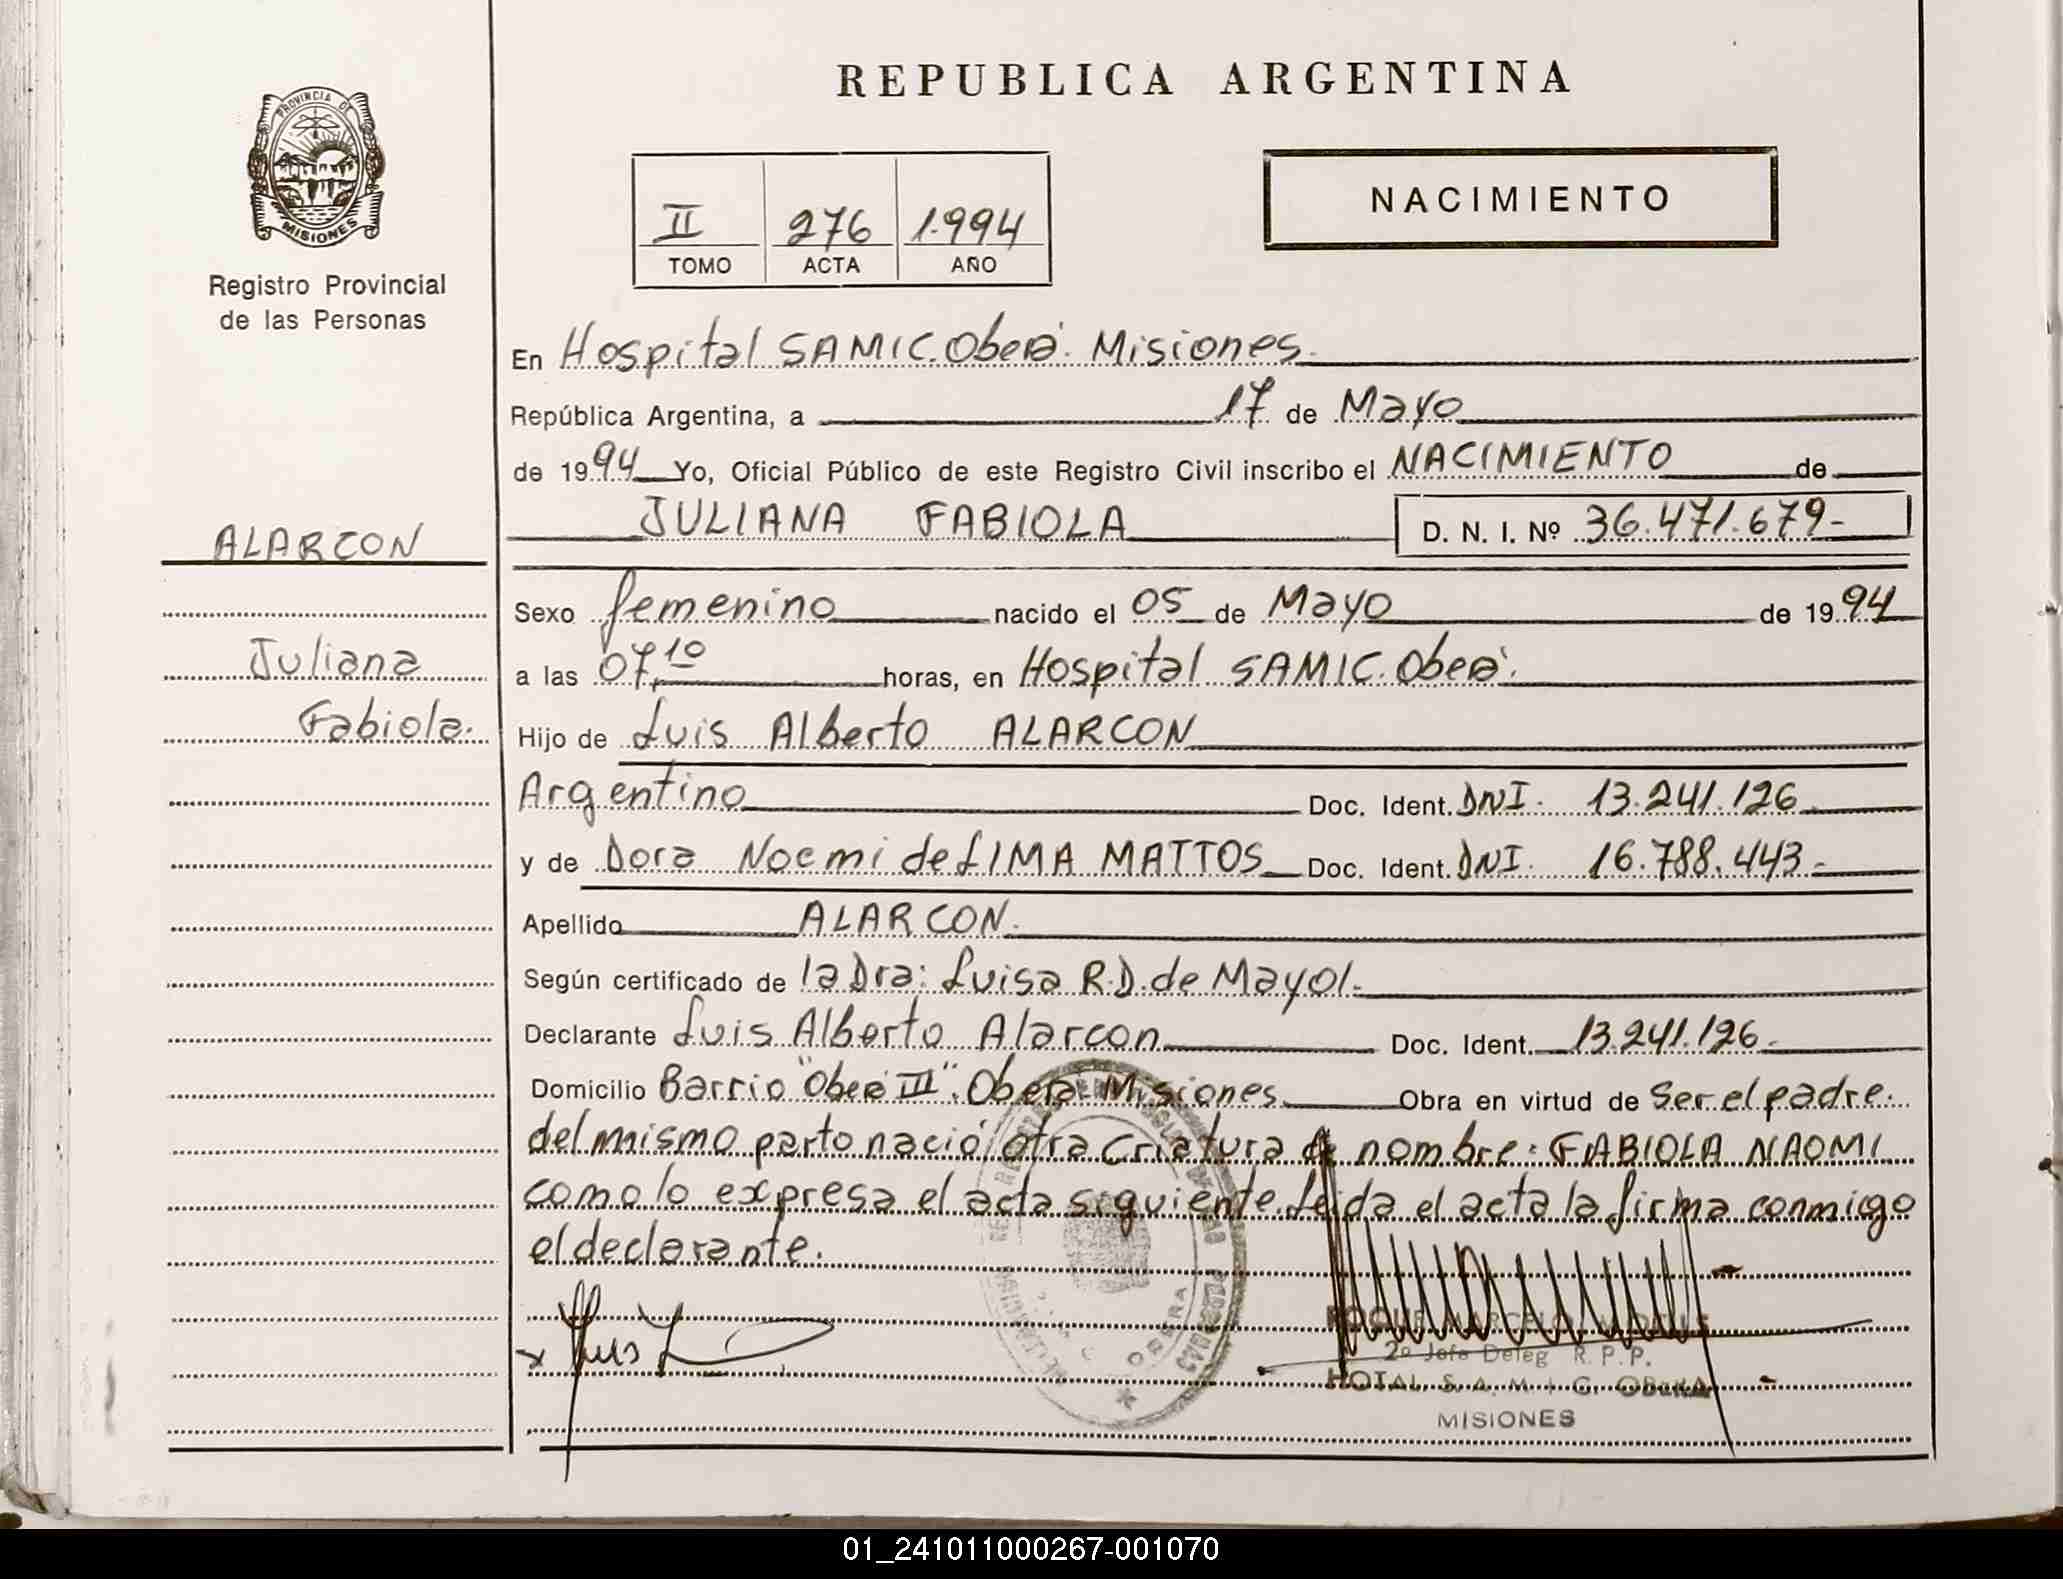 REPUBLICA ARGENTINA
PROVINCIA DE
MISIONES
Registro Provincial
de las Personas
II 276 1.994
TOMO ACTA AÑO
NACIMIENTO
En Hospital SAMIC. Oberá. Misiones.
República Argentina, a 17 de Mayo
de 1994 Yo, Oficial Público de este Registro Civil inscribo el NACIMIENTO de
JULIANA FABIOLA D. N. I. Nº 36.471.679-
ALARCON
Juliana
Fabiola.
Sexo femenino nacido el 05 de Mayo de 1994
a las 07,10 horas, en Hospital SAMIC. Oberá.
Hijo de Luis Alberto ALARCON
Argentino Doc. Ident. DNI. 13.241.126
y de Dora Noemi de LIMA MATTOS Doc. Ident. DNI. 16.788.443-
Apellido ALARCON.
Según certificado de la Dra: Luisa R.D. de Mayol.
Declarante Luis Alberto Alarcon Doc. Ident. 13.241.126.
Domicilio Barrio "Oberá III". Oberá Misiones Obra en virtud de Ser el padre.
del mismo parto nació otra criatura de nombre: FABIOLA NAOMI
como lo expresa el acta siguiente. Leida el acta la firma conmigo
el declarante.
x Luis
OBERA
ROQUE
2º Jefe Deleg R. P. P.
HOTAL S. A. M. I C. OBERA
MISIONES
01_241011000267-001070